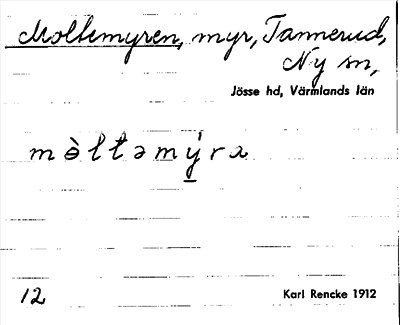 Moltemyren, myr, Tannerud,
Ny sn,
Jösse hd, Värmlands län
mòltəmýra
12
Karl Rencke 1912